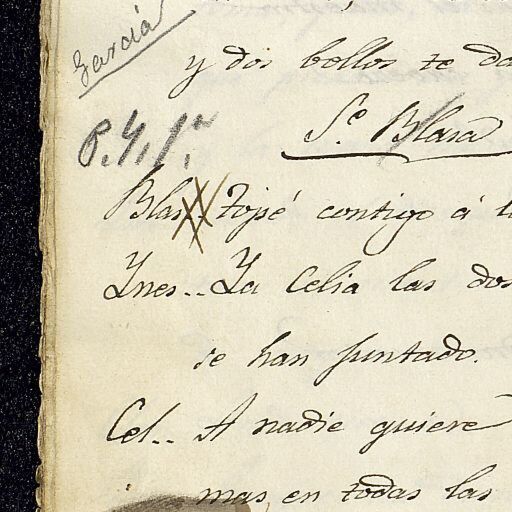 García
y dos bellos te da
P. Y. 1.ª
S.e Blasa
Blas.. Topé contigo á l
Ynes.. Ya Celia las dos
se han juntado.
Cel.. A nadie quiere
mas, en todas las